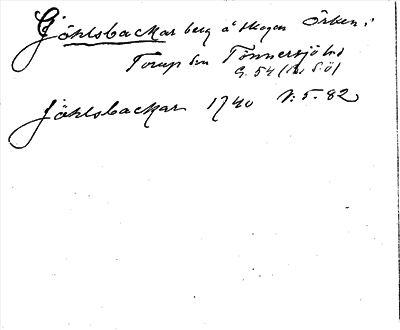 Göhlsbackar berg å skogen Örken i
Torup sn Tönnersjö hd
G. 54 (
Jöhlsbackar 1740 N: 5. 82